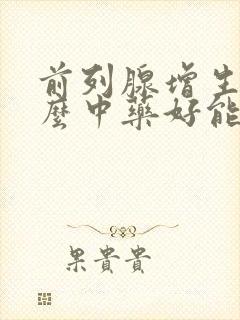 前列腺增生
麼中藥好能
果貴貴